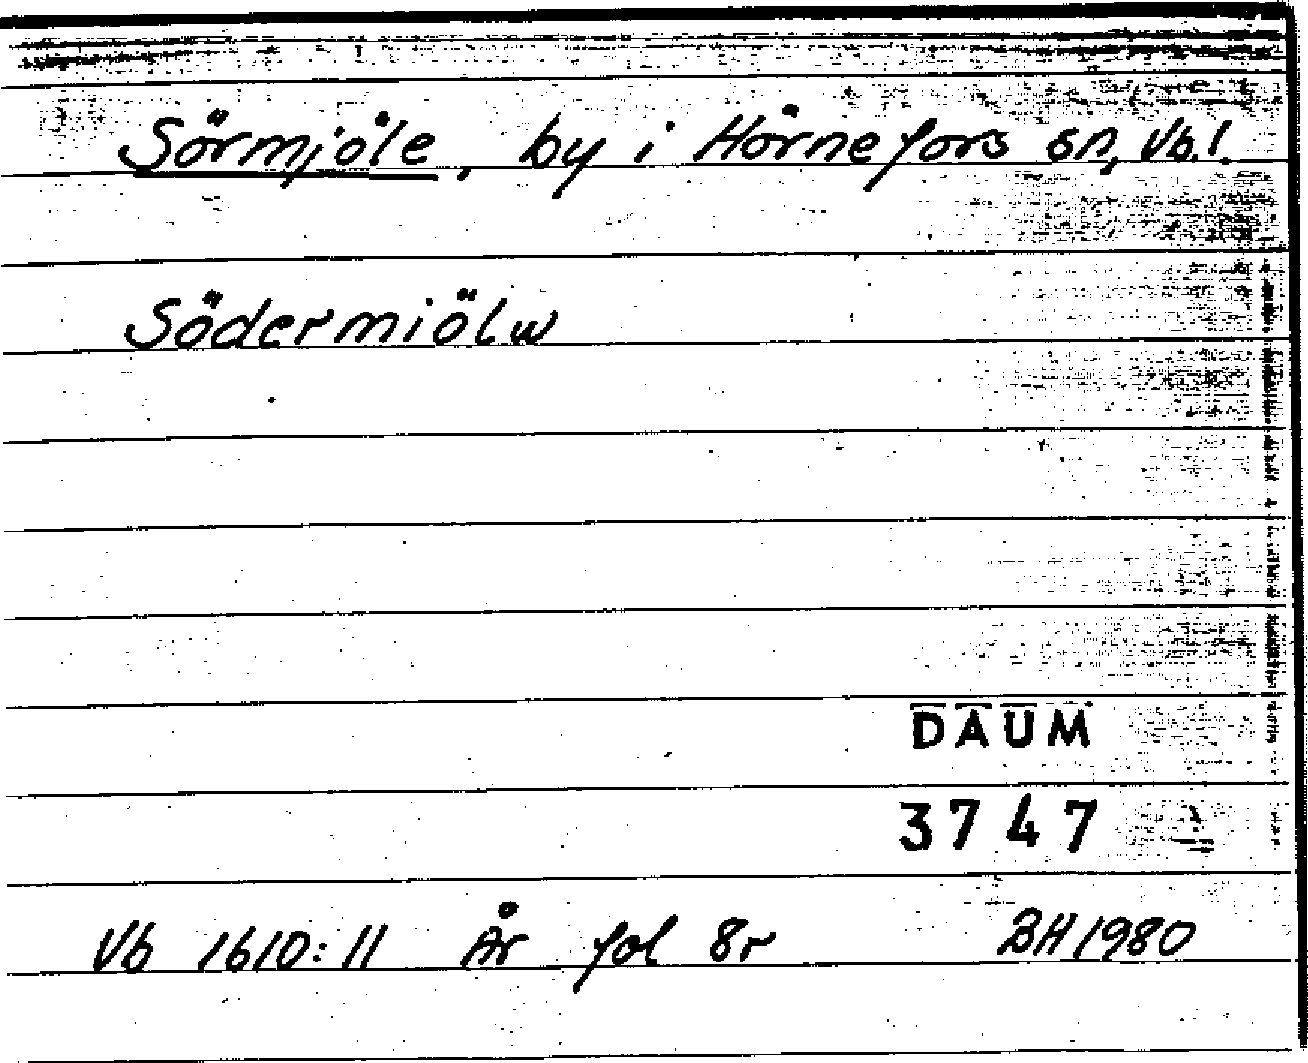 Sörmjöle, by i Hörnefors sn, Vb.l.
Södermiölw
DAUM
3747
Vb 1610:11 År fol 8r BH 1980